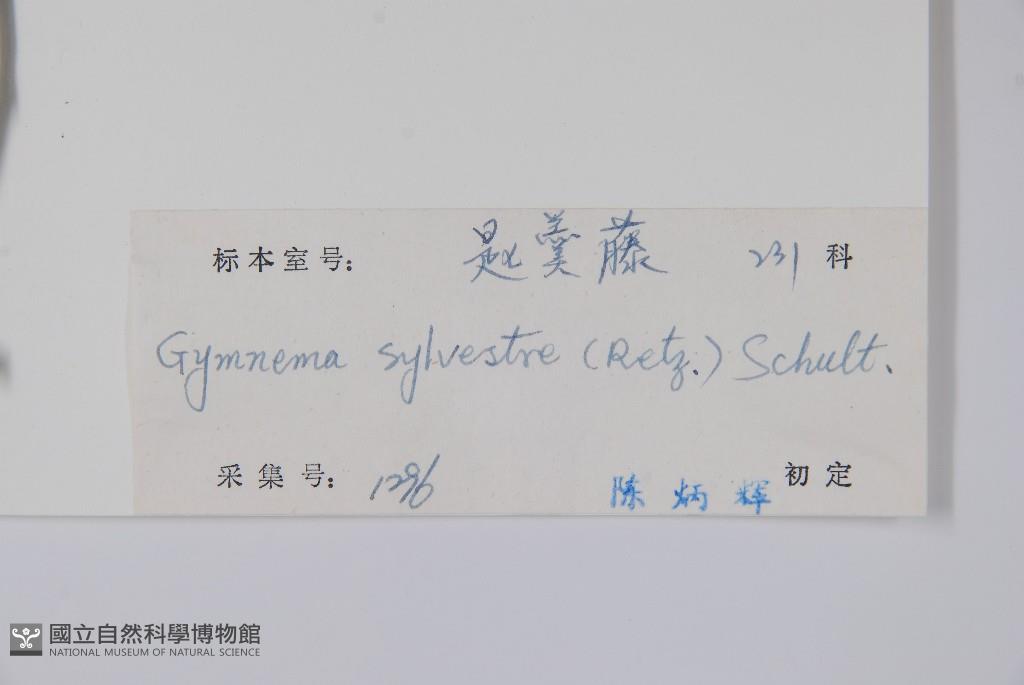 标本室号: 匙羹藤 231 科
Gymnema sylvestre (Retz.) Schult.
采集号: 1296 陈炳辉 初定
國立自然科學博物館
NATIONAL MUSEUM OF NATURAL SCIENCE